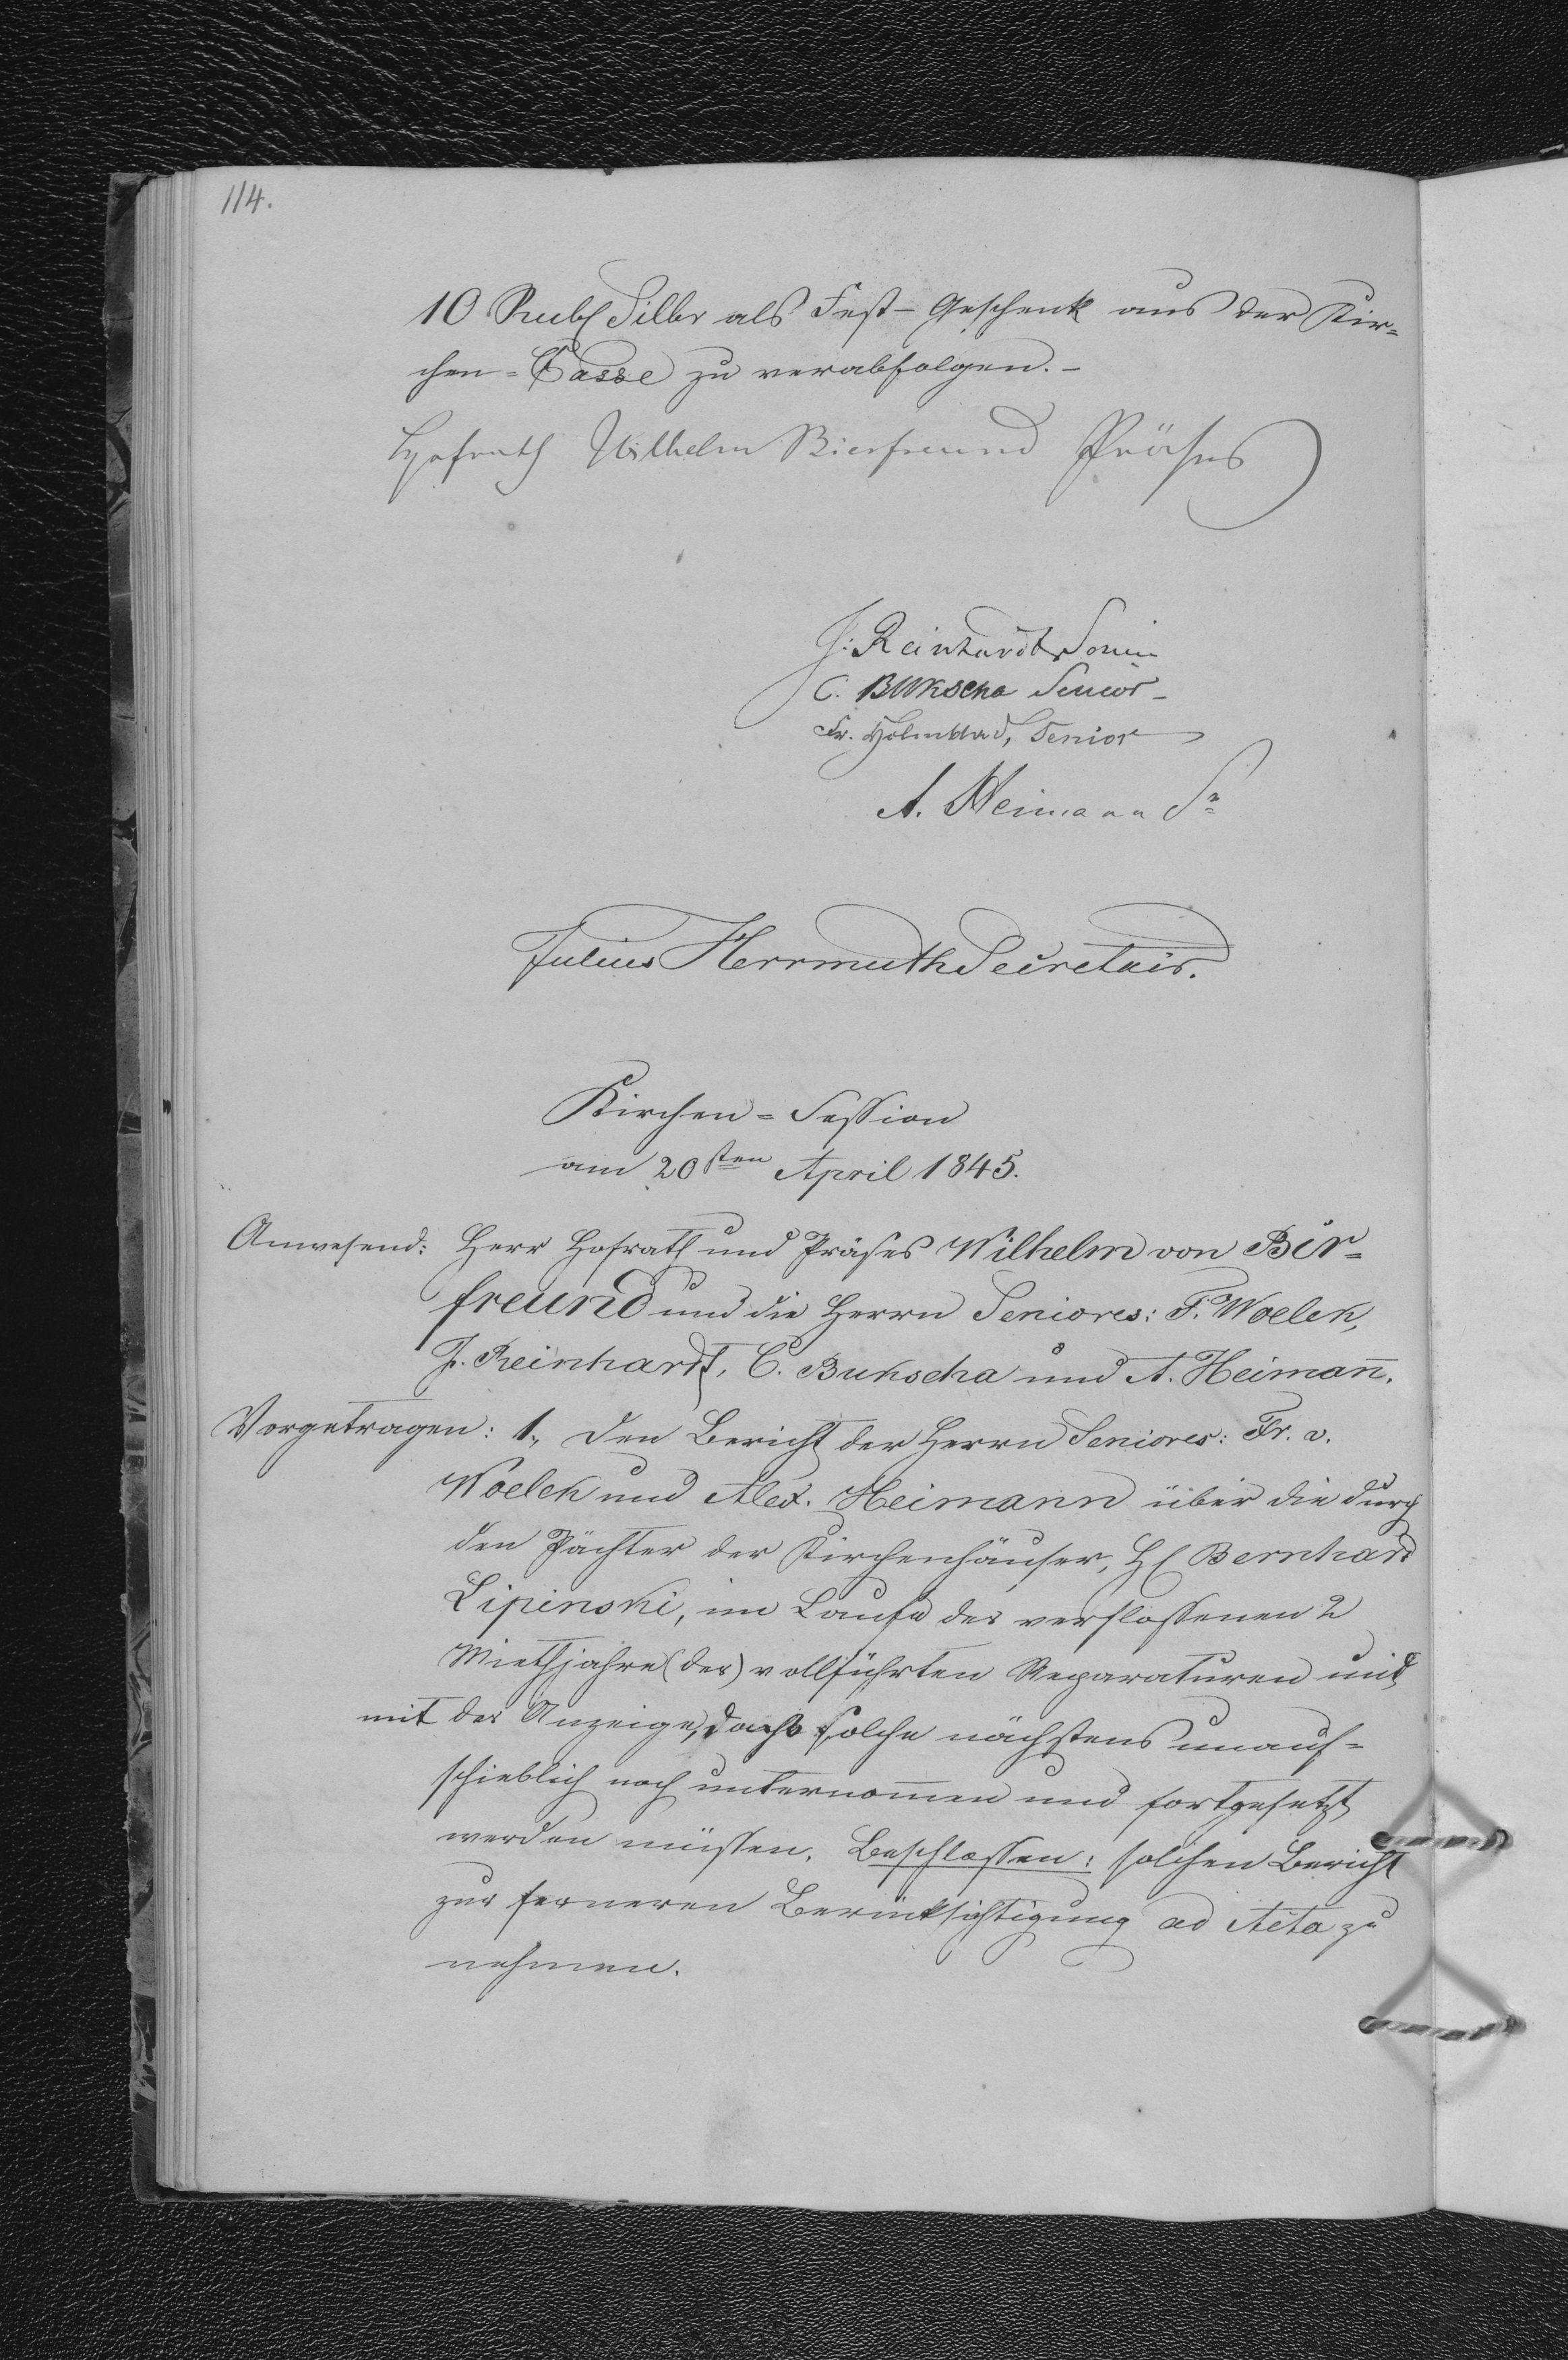 114.
10 Rubl Silbr als Fest-Geschenk aus der Kir=
chen=Casse zu verabfolgen.-
Hofrath Wilhelm Bierfreund Präses
J: Reinhardt Senior
C. Bukscha Senior-
Fr. Holmblad, Senior
A. Heimann Sr
Julius Herrmuth Secretair.
Kirchen=Session
am 20sten April 1845.
Anwesend: Herr Hofrath und Präses Wilhelm von Bir=
freund und die Herrn Seniores: F. Woelck,
J. Reinhardt, C. Bukscha und A. Heiman̄.
Vorgetragen: 1., den Bericht der Herrn Seniores: Fr. v.
Woelck und Alex. Heimann über die durch
den Pächter der Kirchenhäuser, H Bernhard
Lipinski, im Laufe des verflossenen 2
Miethjahre (des) vollführten Reparaturen und
mit der Anzeige, dass solche nächstens unauf=
schieblich noch unternom̄en und fortgesetzt
werden müssen. Beschlossen: solchen Bericht
zur ferneren Berücksichtigung ad Acta zu
nehmen.